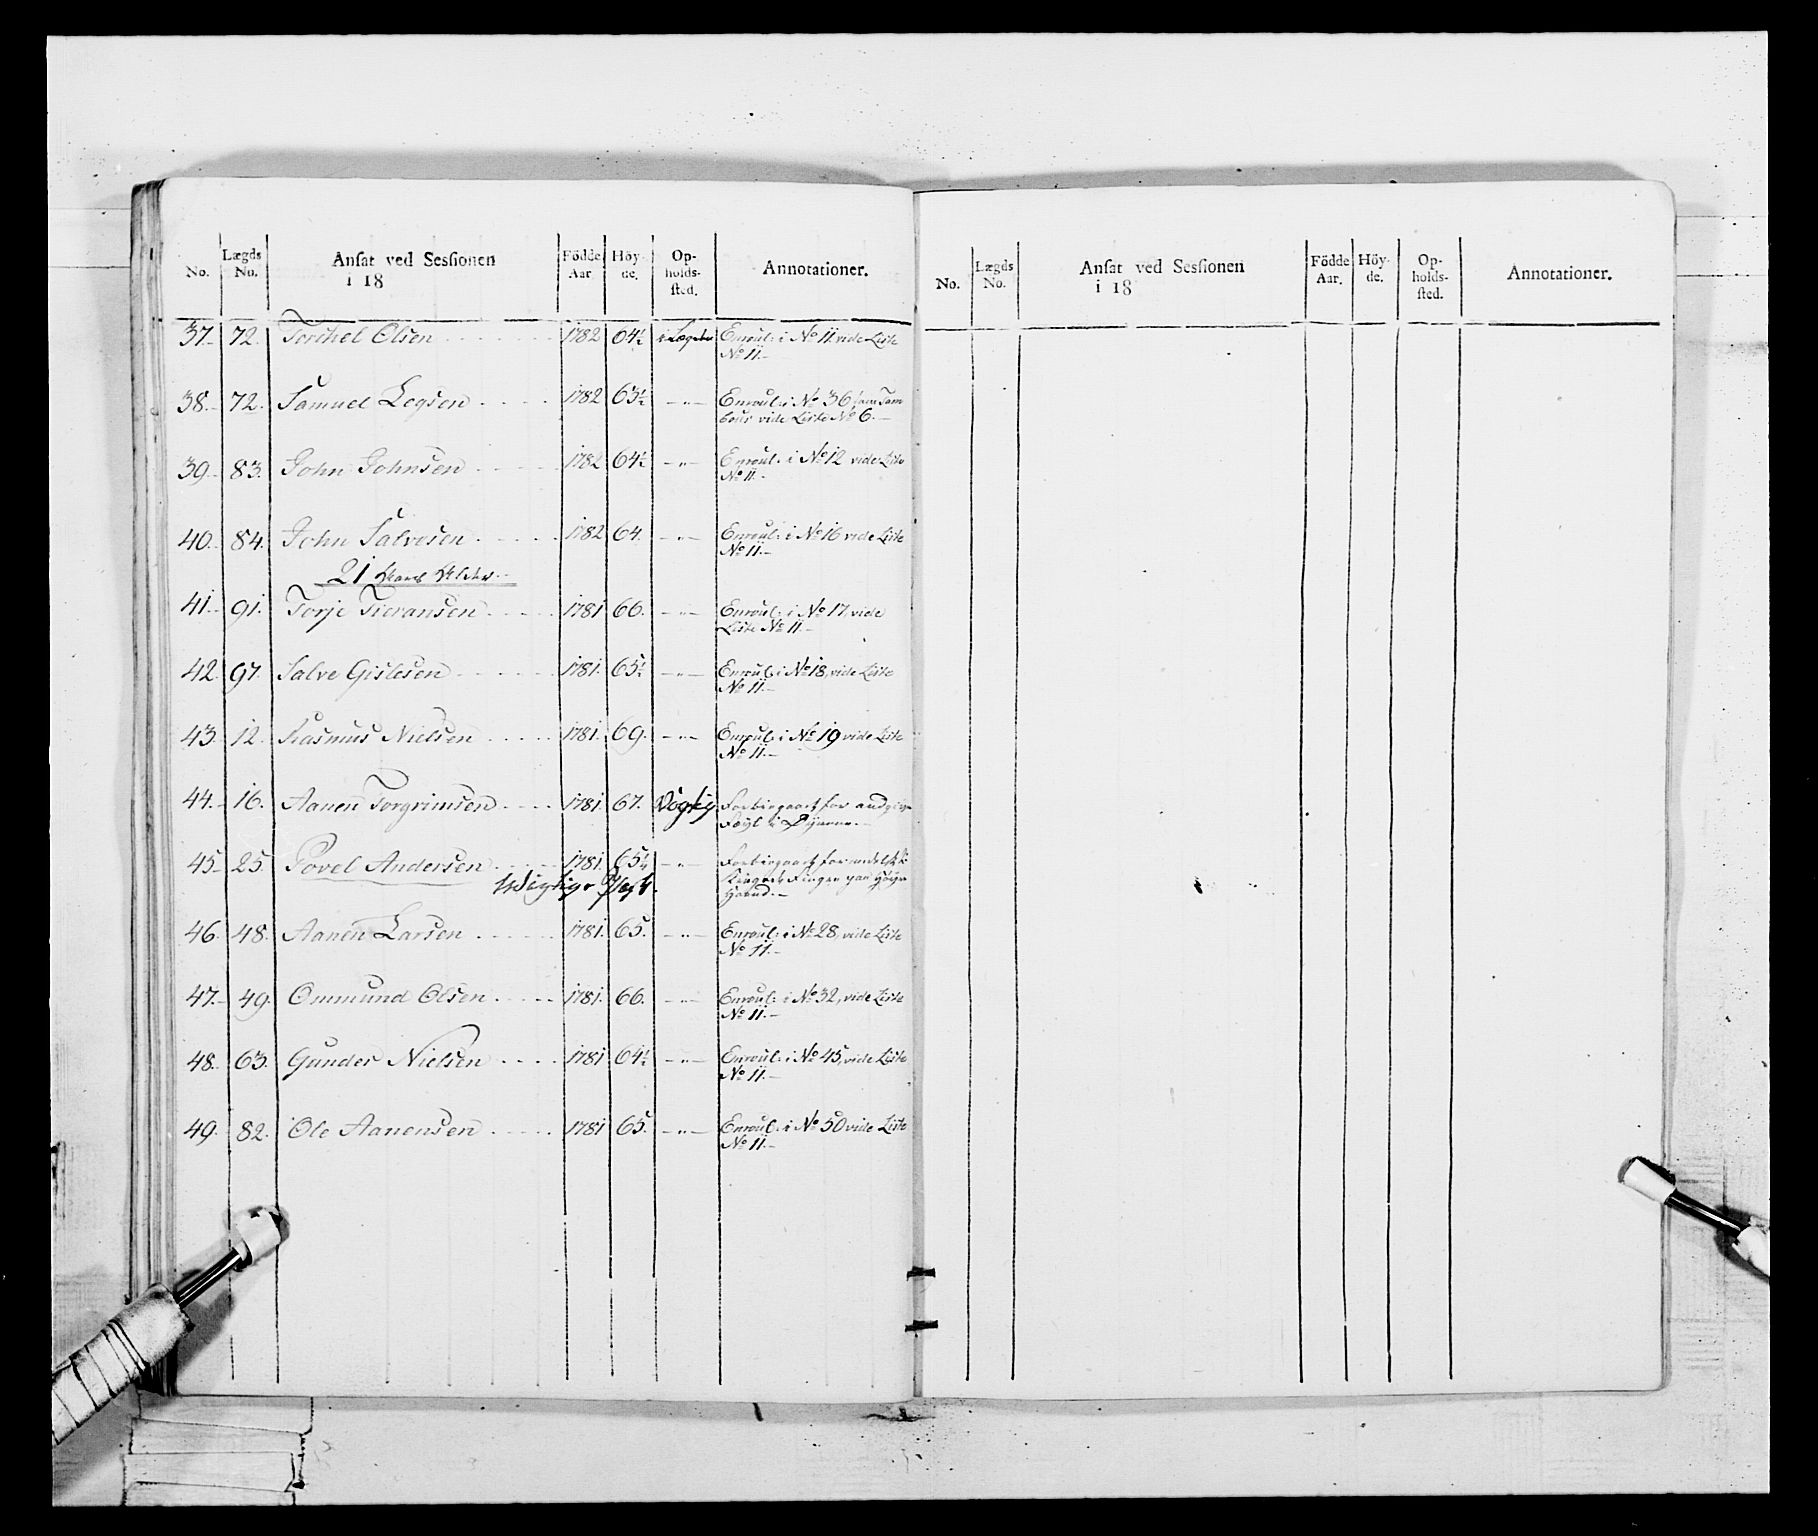 No. Lægds No. Ansat ved Sessionen i 18 Födde Aar Höyde. Opholdssted. Annotationer.
37. 72. Torchel Olsen 1782 64½ i Lægdet Enroul: i No 11 vide Liste
No 11.
38. 72. Samuel Legsen 1782 63½ -"- Enroul: i No 36 som Tam
bour vide Liste No 6.
39. 83. John Johnsen 1782 64½ -"- Enroul: i No 12 vide Liste
No 11.
40. 84. John Salvesen 1782 64. -"- Enroul: i No 16 vide Liste
No 11.
21 Aars Alder.
41. 91. Torje Tieransen 1781 66. -"- Enroul: i No 17, vide
Liste No 11.
42. 97. Salve Gislesen 1781. 65½ -"- Enroul: i No 18, vide Liste
No 11.
43. 12. Rasmus Nielsen 1781. 69. -"- Enroul: i No 19 vide Liste
No 11.
44. 16. Aanen Torgrimsen 1781. 67. Forbigaaet for
Feyl i
45. 25. Povel Andersen 1781. 65¼ -"- Forbigaaet for
Finger paa Høyre
Haand.
46. 48. Aanen Larsen 1781. 65. -"- Enroul: i No 28, vide Liste
No 11.
47. 49. Ommund Olsen 1781. 66. -"- Enroul: i No 32, vide Liste
No 11.
48. 63. Gunder Nielsen 1781 64½ -"- Enroul: i No 45, vide Liste
No 11.
49. 82. Ole Aanensen 1781 65. -"- Enroul: i No 50 vide Liste
No 11.
No. Lægds No. Ansat ved Sessionen i 18 Födde Aar. Höyde. Opholdssted. Annotationer.